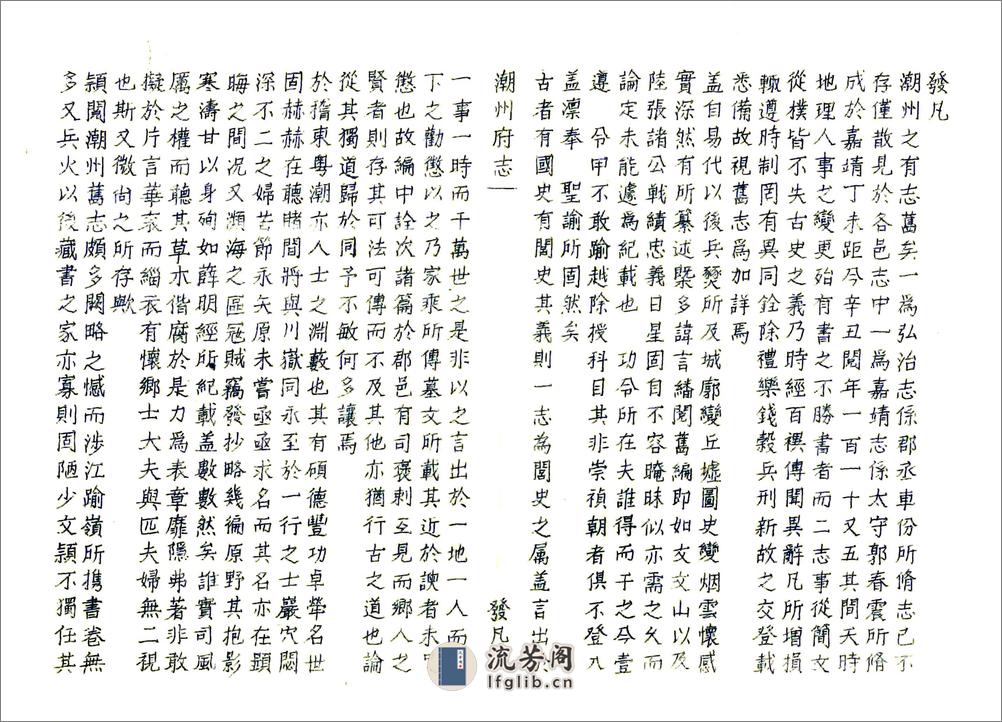 發凡
潮州之有志舊矣一爲弘治志係郡丞車份所脩志已不
存僅散見於各邑志中一爲嘉靖志係太守郭春震所脩
成於嘉靖丁未距今辛丑閱年一百一十又五其間天時
地理人事之變更殆有書之不勝書者而二志事從簡文
從樸皆不失古史之義乃時經百禩傳聞異辭凡所增損
輙遵時制罔有異同銓除禮樂錢穀兵刑新故之交登載
悉備故視舊志爲加詳焉
盖自易代以後兵燹所及城廓變丘墟圖史變烟雲懷感
實深然有所纂述槩多諱言繙閱舊編即如文文山以及
陸張諸公戰績忠義日星固自不容晻昧似亦需之久而
論定未能遽爲紀載也 功令所在夫誰得而干之今壹
遵 令甲不敢踰越除授科目其非崇禎朝者俱不登入
盖凛奉 聖諭所固然矣
古者有國史有閭史其義則一志為閭史之属盖言出於
潮州府志 發凡
一事一時而千萬世之是非以之言出於一地一人而
下之勸懲以之乃家乘所傳墓文所載其近於諛者未
懲也故編中詮次諸篇於郡邑有司褒刺互見而鄉人之
賢者則存其可法可傳而不及其他亦猶行古之道也論
從其獨道歸於同予不敏何多讓焉
於㩜東粤潮亦人士之淵數也其有碩德豐功卓犖名世
固赫赫在聽睹間將與川嶽同永至於一行之士巖穴閟
深不二之婦苦節永矢原未嘗亟亟求名而其名亦在顕
晦之間况又瀕海之區冦賊竊發抄略幾徧原野其抱影
寒濤甘以身殉如薛明經所紀載盖數數然矣誰實司風
厲之權而聽其草木偕腐於是力爲表章靡隱弗著非敢
擬於片言華衮而緇衣有懷鄉士大夫與匹夫婦無二視
也斯又微尚之所存歟
穎閱潮州舊志頗多闕略之憾而涉江踰嶺所携書卷無
多又兵火以後藏書之家亦寡則固陋少文穎不獨任其
流芳阁
lfglib.cn